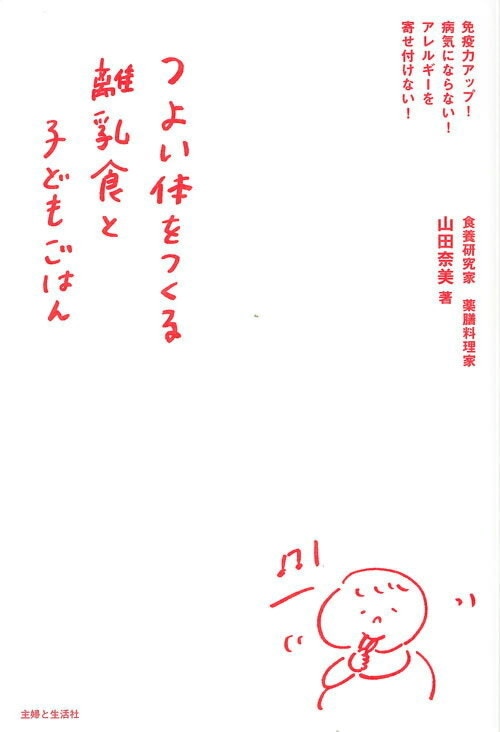 免疫力アップ！
病気にならない！
アレルギーを
寄せ付けない！
食養研究家　薬膳料理家
山田奈美 著
つよい体をつくる
離乳食と
子どもごはん
主婦と生活社